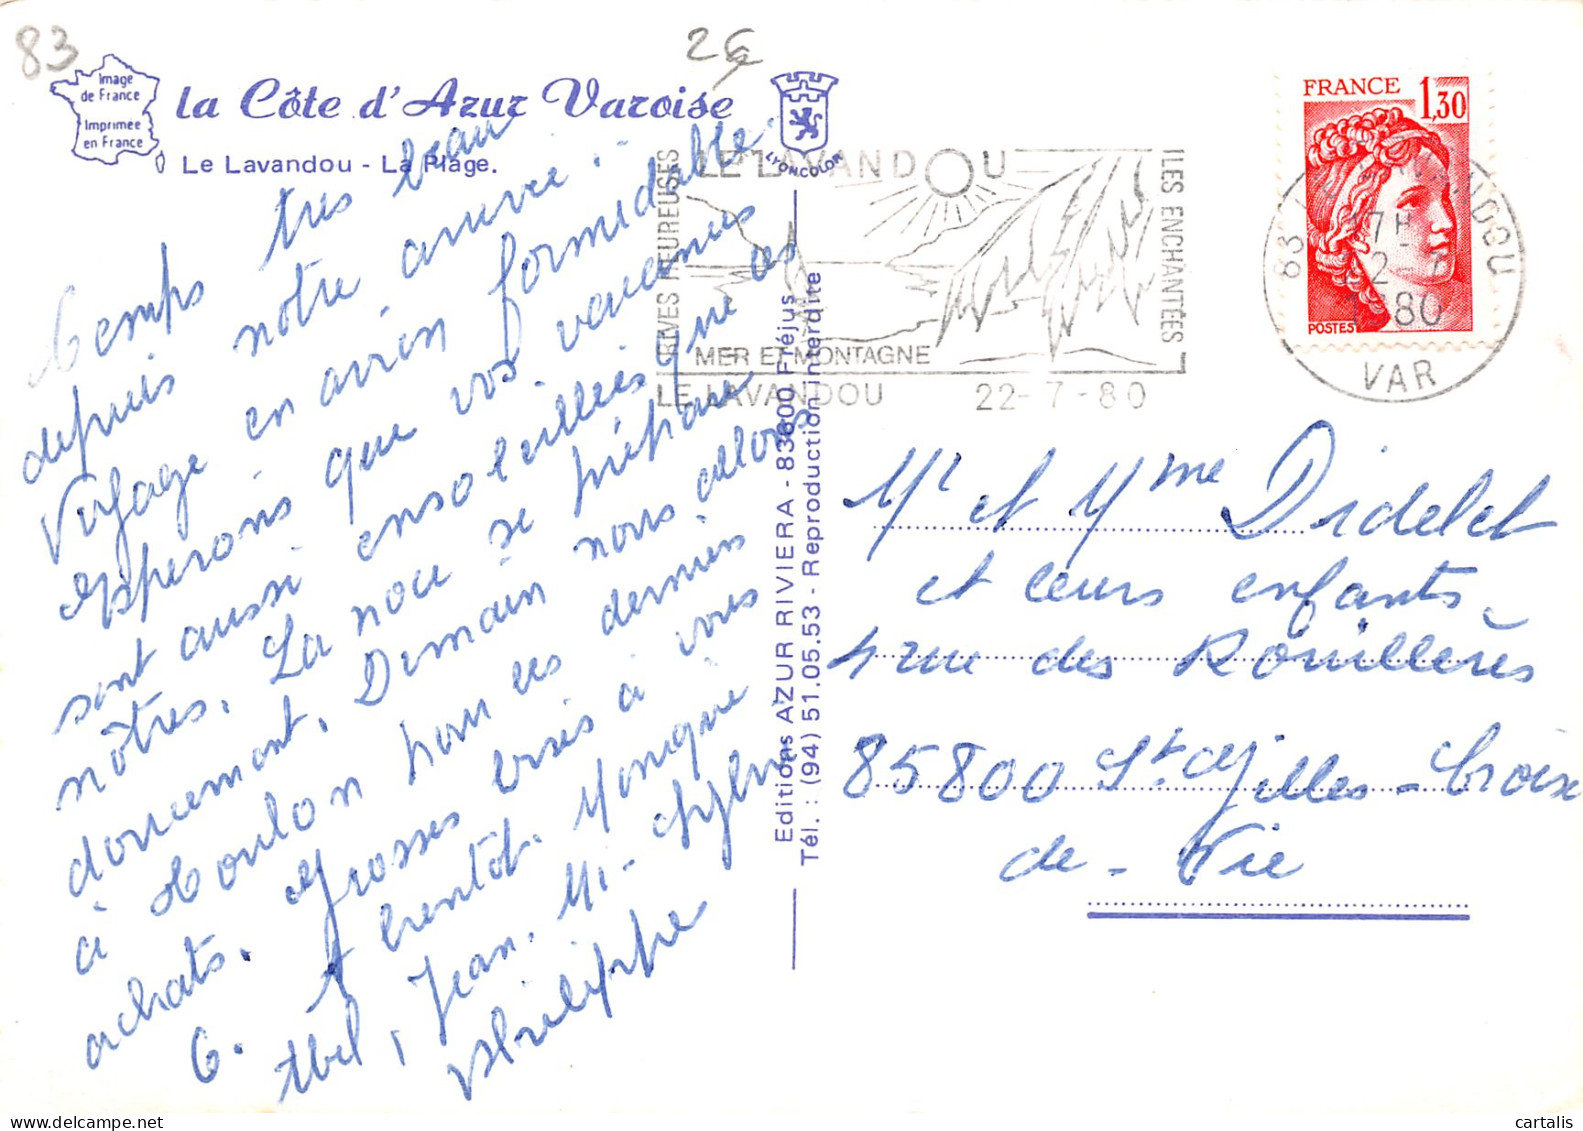 83
2€
Image
de France
Imprimée
en France
la Côte d'Azur Varoise
Le Lavandou - La Plage.
LYONCOLOR
Temps très beau
depuis notre arrivée.
Voyage en avion formidable.
Espérons que vos vacances
sont aussi ensoleillées que les
nôtres. La noce se prépare
doucement. Demain nous allons
à Toulon pour les derniers
achats. Grosses bises à vous
6. A bientôt. Monique
Abel, Jean, Mi-Sylvie
Philippe
Editions AZUR RIVIERA - 83600 Fréjus
Tél. : (94) 51.05.53 - Reproduction interdite
RIVES HEUREUSES
LE LAVANDOU
ILES ENCHANTÉES
MER ET MONTAGNE
LE LAVANDOU 22-7-80
FRANCE
1,30
POSTES
83 LE LAVANDOU
17H
22-7
1980
VAR
Mr et Mme Didelet
et leurs enfants
4 rue des Rouillères
85800 St Gilles-Croix
de-Vie
cartalis